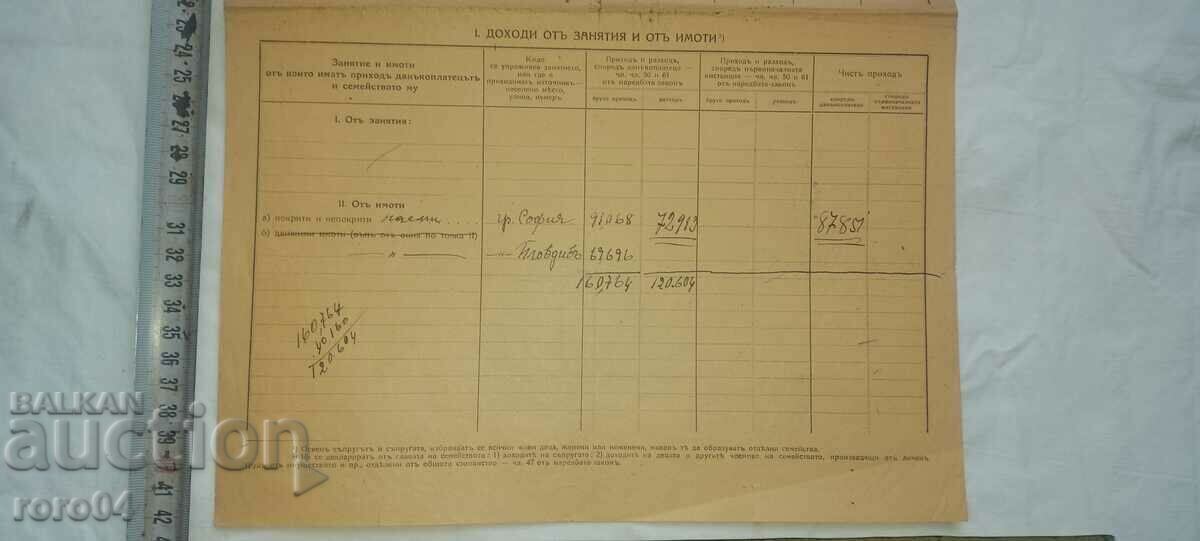 I. ДОХОДИ ОТЪ ЗАНЯТИЯ И ОТЪ ИМОТИ²)
Занятие и имоти
отъ които иматъ приходъ данъкоплатецътъ
и семейството му
Кѫде
се упражнява занятието,
или где е
приходниятъ източник —
населено мѣсто,
улица, номеръ
Приходъ и разходъ,
споредъ данъкоплатеца —
чл. чл. 50 и 61
отъ наредбата-законъ
бруто приходъ
разходъ
Приходъ и разходъ,
споредъ първоначалната
инстанция — чл. чл. 50 и 61
отъ наредбата-законъ
бруто приходъ
разходъ
Чистъ приходъ
според
данъкоплатеца
според
първоначалната
инстанция
I. Отъ занятия:
II. Отъ имоти
а) покрити и непокрити наеми .... гр. София 91068 72913 87851
б) движими имоти (вънъ отъ ония по точка II)
— „ — — „ — Пловдивъ 69696
160,764 120.604
160,764
40160
120.604
1) Освенъ съпругътъ и съпругата, изброяватъ се всички живи деца, женени или неженени, макаръ тѣ да образуватъ отдѣлни семейства.
се декларират отъ главата на семейството: 1) доходитѣ на съпругата; 2) доходитѣ на децата и другитѣ членове на семейството, произходящи отъ личенъ
и пр., отдѣлени отъ общата — чл. 47 отъ наредбата-законъ.
24
25
26
27
28
29
31
32
33
34
35
36
37
38
39
41
42
BALKAN
Auction
roro04